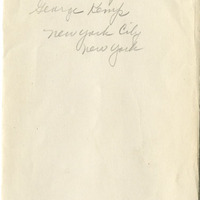 George Kemp
New York City
New York